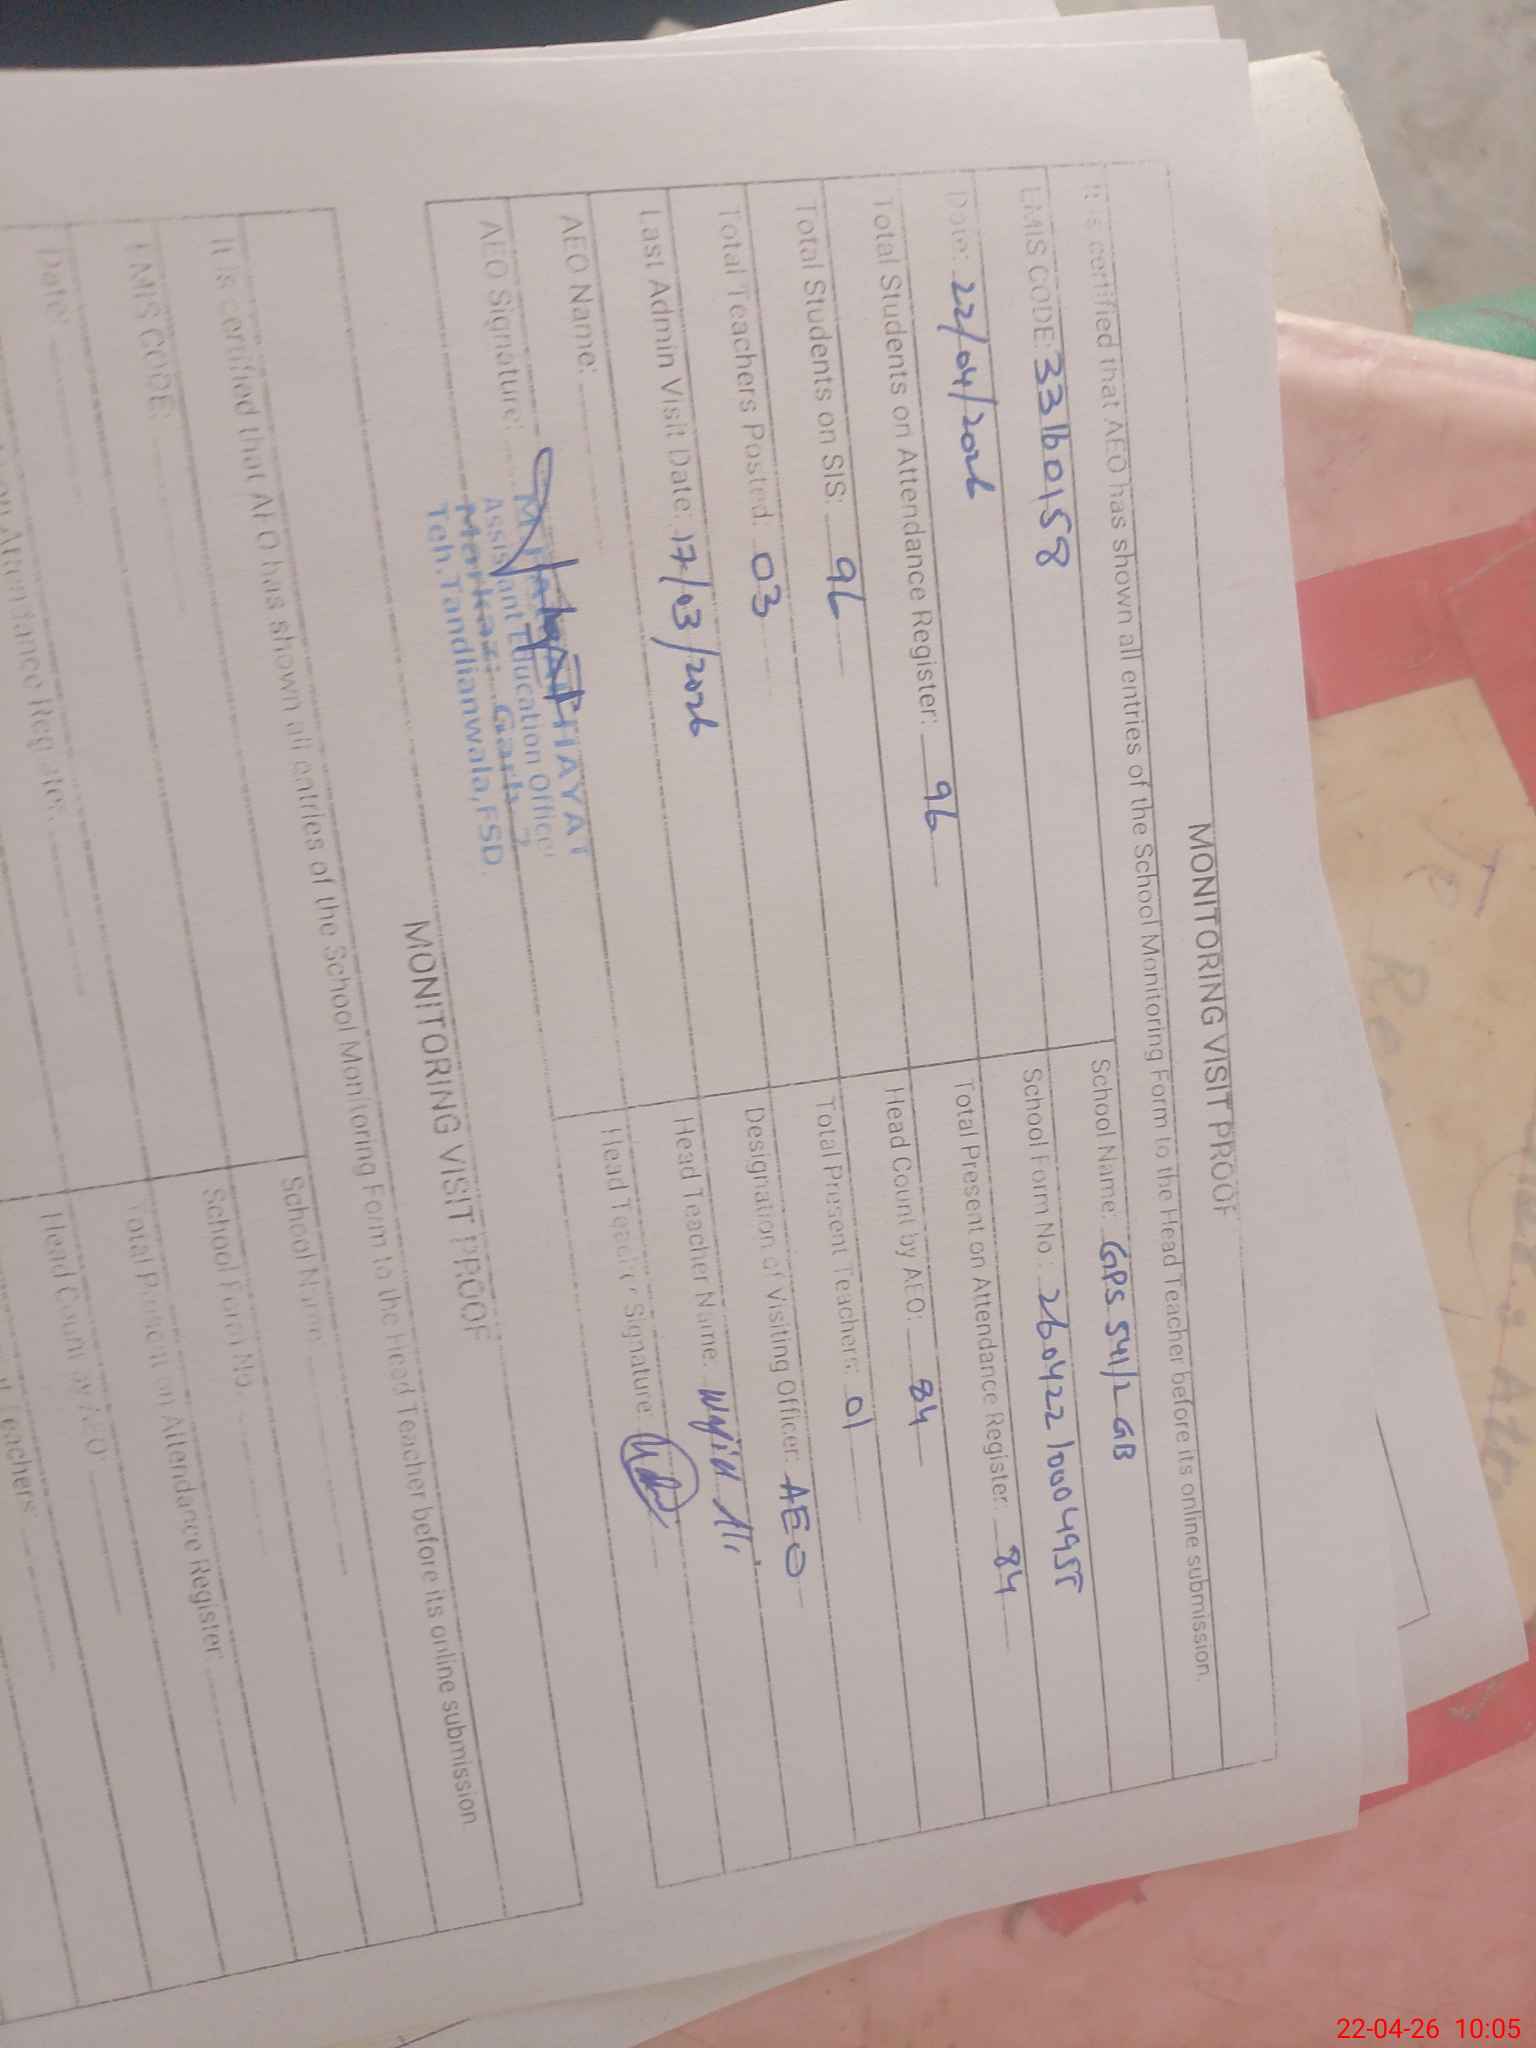 MONITORING VISIT PROOF
It is certified that AEO has shown all entries of the School Monitoring Form to the Head Teacher before its online submission.
EMIS CODE: 33160158
School Name: GPS 541/2 GB
Date: 22/04/2026
School Form No: 26042210004955
Total Students on Attendance Register: 96
Total Present on Attendance Register: 84
Total Students on SIS: 96
Head Count by AEO: 84
Total Teachers Posted: 03
Total Present Teachers: 01
Last Admin Visit Date: 17/03/2026
Designation of Visiting Officer: AEO
AEO Name:
Head Teacher Name:
AEO Signature:
Head Teacher Signature:
HAYAT
Assistant Education Officer
Markaz: Garh
Teh. Tandlianwala, FSD.
MONITORING VISIT PROOF
It is certified that AEO has shown all entries of the School Monitoring Form to the Head Teacher before its online submission
School Name:
EMIS CODE:
School Form No
Date:
Total Present on Attendance Register
on Attendance Register:
Head Count by AEO:
Teachers:
22-04-26 10:05